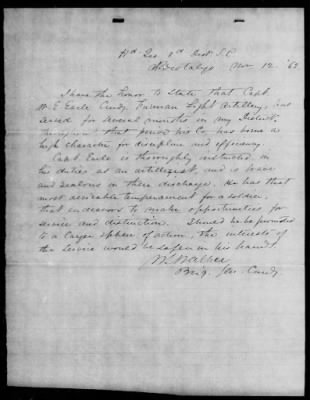 Hd Qrs 3d Dist S.C.
Pocotaligo Nov 12 '63
I have the honor to State that Capt
W. E. Earle Comdg Furman Light Artillery, has
served for several months in my District.
Throughout that period his Co has borne a
high character for discipline and efficiency.
Capt. Earle is thoroughly instructed in
his duties as an artillerist, and is brave
and zealous in their discharge. He has that
most desirable temperament for a soldier,
that endeavors to make opportunities for
service and distinction. Should he be promoted
to a larger sphere of action, the interests of
the service would be safe in his hands.
W. S. Walker
Brig. Gen. Comdg